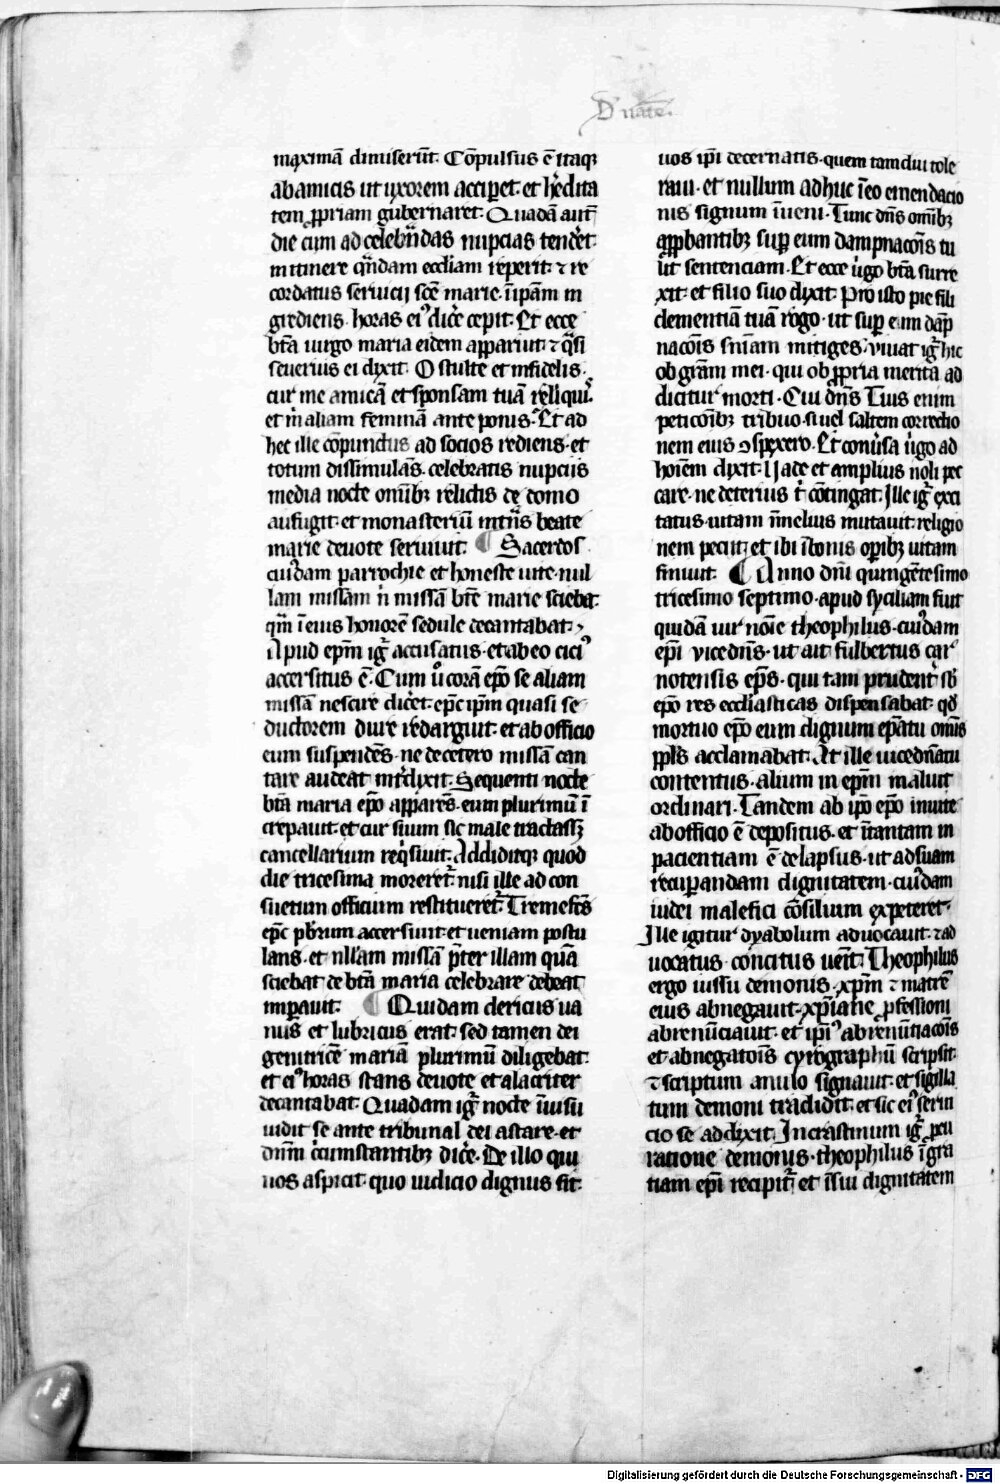 D' nate.
maximā dimiserūt. Cōpulsus ē itaqꝫ
ab amicis ut uxorem acciꝑet. et h'edita
tem ꝓpriam gubernaret. Quadā aut̄
die cum ad celebrādas nupcias tender̄t
in itinere quādam eccl̄iam reperit. ⁊ re
cordatus seruicij scē marie. ip̄am in
grediens. horas ei' dic̄e cepit. Et ecce
bt̄a uirgo maria eidem apparuit. ⁊ q̄si
seuerius ei dixit. O stulte et infidelis.
cur me amicā et sponsam tuā reliqui.
et m̄ aliam feminā anteponis. Et ad
hec ille cōpunctus ad socios rediens. et
totum dissimulās. celebratis nupcijs
media nocte omīb; relictis de domo
aufugit. et monasteriū intrās beate
marie deuote seruiuit. ¶ Sacerdos
cui'dam parrochie et honeste uite. nul
lam missam n̄ missā bt̄e marie sciebat.
qm̄ ī eius honorē sedule decantabat.
Apud ep̄m igr̄ accusatus. et ab eo cici'
accersitus ē. Cum u̇ corā ep̄o se aliam
missā nescire dic̄et. ep̄c ip̄m quasi se
ductorem dure redarguit. et ab officio
eum suspendēs. ne de cetero missā can
tare audeat int'dixit. Sequenti nocte
bt̄a maria ep̄o apparēs. eum plurimū ī
crepauit. et cur suum sic male tractass;
cancellarium req̇siuit. Addiditq; quod
die tricesima moreret̄. nisi ille ad con
suetum officium restitueret̄. Tremefc̄s
ep̄c pb̄rum accersiuit. et ueniam postu
lans. et nll'am missā p̄ter illam quā
sciebat de bt̄a maria celebrare debeat
imꝑauit. ¶ Quidam clericus ua
nus et lubricus erat. sed tamen dei
genitricē mariā plurimū diligebat.
et ei' horas stans deuote et alacriter
decantabat. Quadam igr̄ nocte ī uisu
uidit se ante tribunal dei astare. et
dn̄m circumstantib; dic̄e. De illo qui
uos aspicit. quo iudicio dignus sit.
uos ip̄i decernatis. quem tam diu tole
raui. et nullum adhuc ī eo emendacio
nis signum īueni. Tunc dn̄s omīb;
apꝓbantib; suꝑ eum dampnacōis tu
lit sentenciam. Et ecce u̇go bt̄a surre
xit. et filio suo dixit. Pro isto pie fili
clementiā tuā rogo. ut suꝑ eum dāp
nacōis sn̄iam mitiges. viuat igr̄ hic
ob grām mei. qui ob ꝓpria merita ad
dicitur morti. Cui dn̄s Tuis enim
peticōib; tribuo. si uel saltem correctio
nem eius ꝯspexero. Et conu̇sa u̇go ad
hoīem dixit. Uade et amplius noli pec
care. ne deterius t̄ cōtingat. Ille igr̄ exci
tatus. uitam ī melius mutauit. religio
nem peciit. et ibi ī bonis oꝑib; uitam
finiuit. ¶ Anno dn̄i quingētesimo
tricesimo septimo. apud syciliam fuit
quidā uir noīe theophilus. cui'dam
ep̄i vicedn̄s. ut ait fulbertus car'
notensis ep̄s. qui tam prudent' sb̄
ep̄o res eccl̄iasticas dispensabat. qd̄
mortuo ep̄o eum dignum ep̄atu omīs
ppl̄s acclamabat. At ille uicedn̄atu
contentus. alium in ep̄m maluit
ordinari. Tandem ab ip̄o ep̄o inuite
ab officio ē depositus. et ī tantam in
pacientiam ē delapsus. ut ad suam
recuꝑandam dignitatem. cui'dam
iudei malefici cōsilium expeteret.
Ille igitur dyabolum aduocauit. ⁊ ad
uocatus concitus uēit. Theophilus
ergo iussu demonis. xp̄m ⁊ matrē
eius abnegauit. xp̄iane ꝓfessioni
abrenūciauit. et ip̄i' abrenūtiacōis
et abnegatōis cyrographū scripsit.
⁊ scriptum anulo signauit. et sigilla
tum demoni tradidit. et sic ei' serui
cio se addixit. In crastinum igr̄ ꝓcu
ratione demonis. theophilus ī gra
tiam ep̄i recipit̄. et ī sui dignitatem
Digitalisierung gefördert durch die Deutsche Forschungsgemeinschaft - DFG